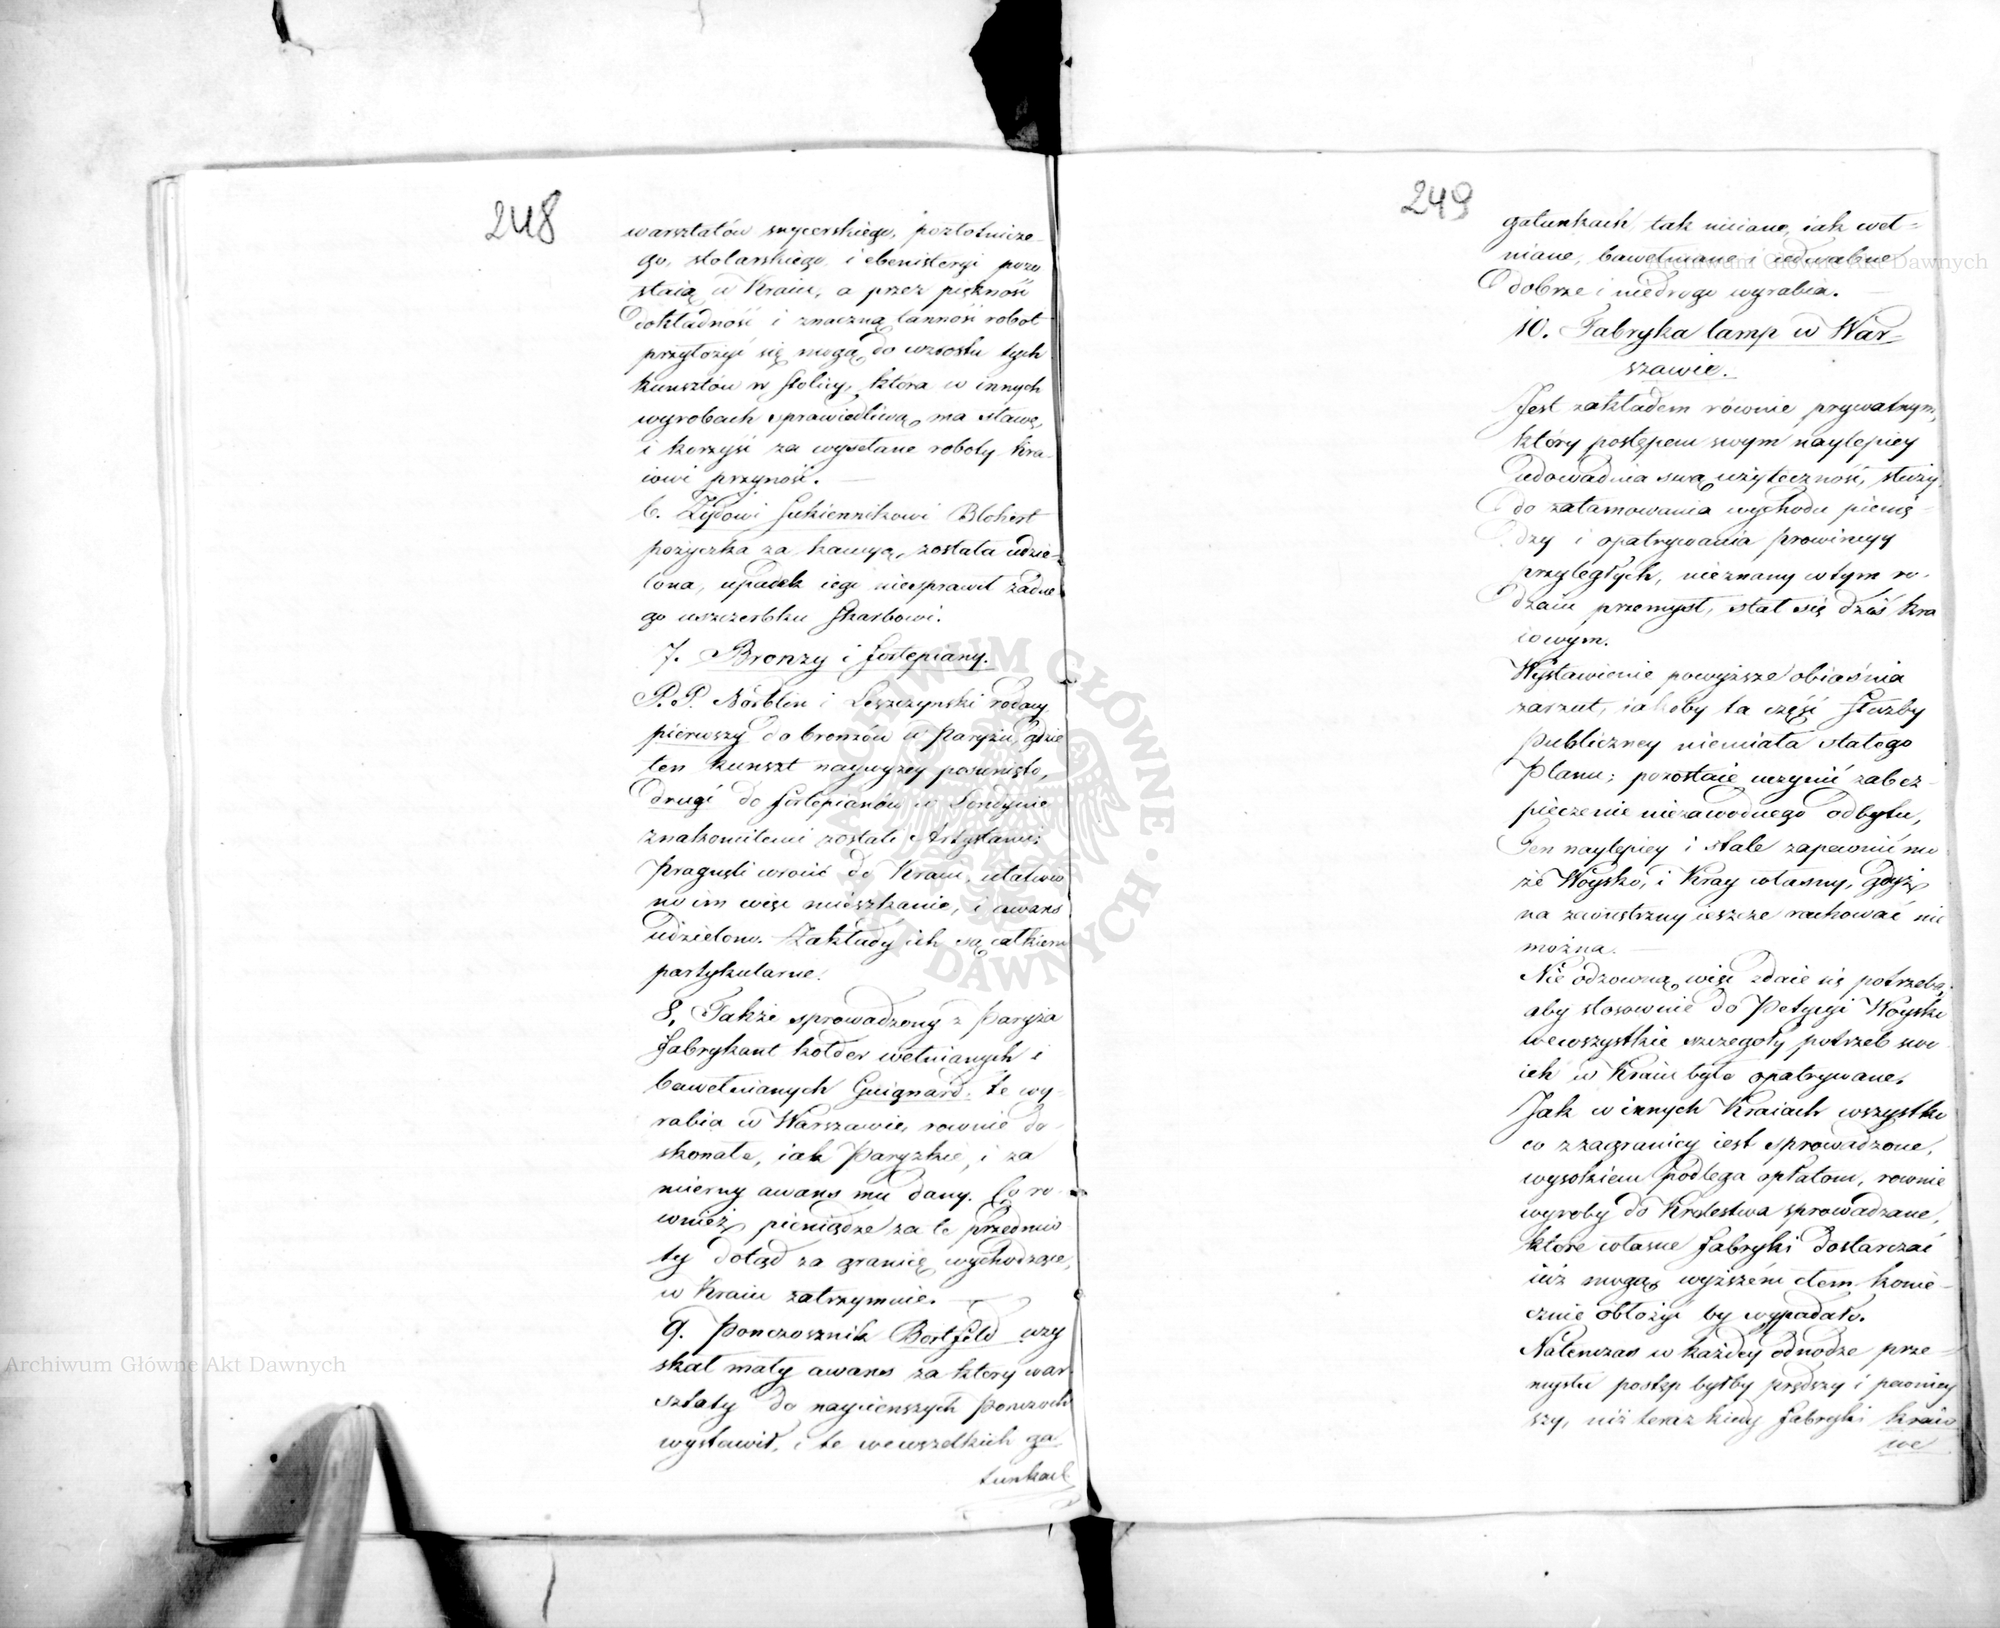 248
warsztatów snycerskiego, pozłotnicze-
go, stolarskiego i ebenisteryi pozo
staią w Kraiu, a przez piękność
dokładność i znaczną tanność robot
przyłożyć się mogą do wzrostu tych
kunsztów w stolicy, która w innych
wyrobach sprawiedliwą ma sławę,
i korzyść za wysełane roboty Kra-
iowi przynosi.
6. Żydowi Sukiennikowi Blohert
pożyczka za kaucyą została udzie-
lona, upadek iego niesprawił żadne
go uszczerbku Skarbowi.
7. Bronzy i fortepiany.
P.P. Norblin i Leszczyński rodacy
pierwszy do bronzów w Paryżu, gdzie
ten kunszt naywyżey posunięto,
drugi do fortepianów w Londynie
znakomitemi zostali Artystami;
Pragnęli wrócić do Kraiu, ułatwio
no im więc mieszkanie, i awans
udzielono. Zakłady ich są całkiem
partykularne.
8, Także sprowadzony z Paryża
fabrykant kołder wełnianych i
bawełnianych Guignard. te wy-
rabia w Warszawie, rownie do-
skonałe, iak Paryzkie, i za
mierny awans mu dany. Co ro-
wnież pieniądze za te przedmio
ty dotąd za granicę wychodzące,
w Kraiu zatrzymuie.
9. Ponczosznik Bortfeld uzy
skał mały awans za ktory war
sztaty do naycienszych Ponczoch
wystawił, i te wewszelkich ga
tunkach
249
gatunkach tak niciane, iak weł-
niane, bawełniane i iedwabne
dobrze i niedrogo wyrabia.
10. Fabryka lamp w War-
szawie.
Jest zakładem równie prywatnym,
który postępem swym naylepiey
udowadnia swą użyteczność, służy
do zatamowania wychodu pienię-
dzy i opatrywania prowincyy
przyległych, nieznany wtym ro-
dzaiu przemysł, stał się dziś kra
iowym.
Wystawienie powyższe obiaśnia
zarzut, iakoby ta część Służby
Publiczney niemiała stałego
Planu; pozostaie uczynić zabez-
pieczenie niezawodnego odbytu,
Ten naylepiey i stale zapewnić mo
że Woysko, i Kray własny, gdyż
na zewnętrzny ieszcze rachować nie
można.
Nie odzowną więc zdaie się potrzebą,
aby stosownie do Petycyi Woysko
wewszystkie szczegoły potrzeb swo
ich w Kraiu było opatrywane,
Jak w innych Kraiach wszystko
co z zagranicy iest sprowadzone,
wysokiem podlega opłatom, rownie
wyroby do Krolestwa sprowadzane,
ktore własne fabryki dostarczać
iuż mogą, wyższém cłem konie-
cznie obłożyć by wypadało.
Natenczas w każdey odnodze prze-
mysłu postęp byłby prędszy i pewniey
szy, niż teraz kiedy fabryki kraio
we
Archiwum Główne Akt Dawnych
Archiwum Główne Akt Dawnych
ARCHIWUM GŁÓWNE AKT DAWNYCH